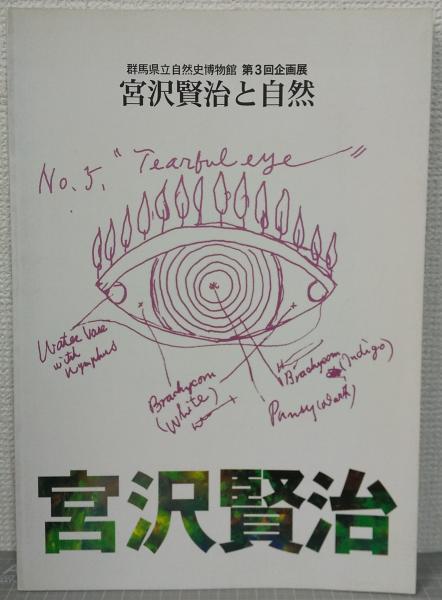 群馬県立自然史博物館 第3回企画展
宮沢賢治と自然
No. 5, "Tearful eye"
Water Vase
with
Nymphus
Brachycom
(White)
Brachycom
(Indigo)
Pansy (Dark)
宮沢賢治